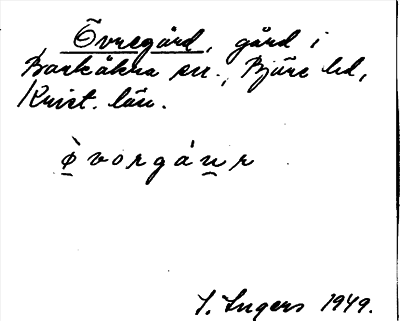 Övregård, gård i
Barkåkra sn., Bjäre hd,
Krist. län.
ö̀vorgánr
I. Ingers 1949.